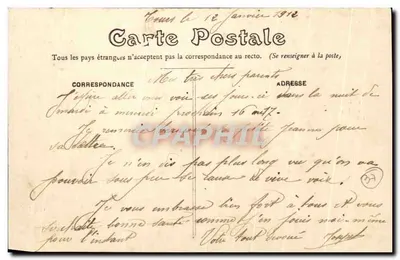 Tours le 12 Janvier 1912
Carte Postale
Tous les pays étrangers n'acceptent pas la correspondance au recto. (Se renseigner à la poste)
Mes très chers parents
CORRESPONDANCE
ADRESSE
J'espère aller vous voir ces jours-ci dans la nuit de
mardi à mercredi prochain 16 au 17.
Je remercie
Jeanne pour
sa
CPARAMA
Je n'en dis pas plus long vu qu'on va
pouvoir sous peu se causer de vive voix.
Je vous embrasse bien fort à tous et vous
souhaite bonne santé comme j'en jouis moi-même
pour l'instant
Votre tout dévoué Joseph